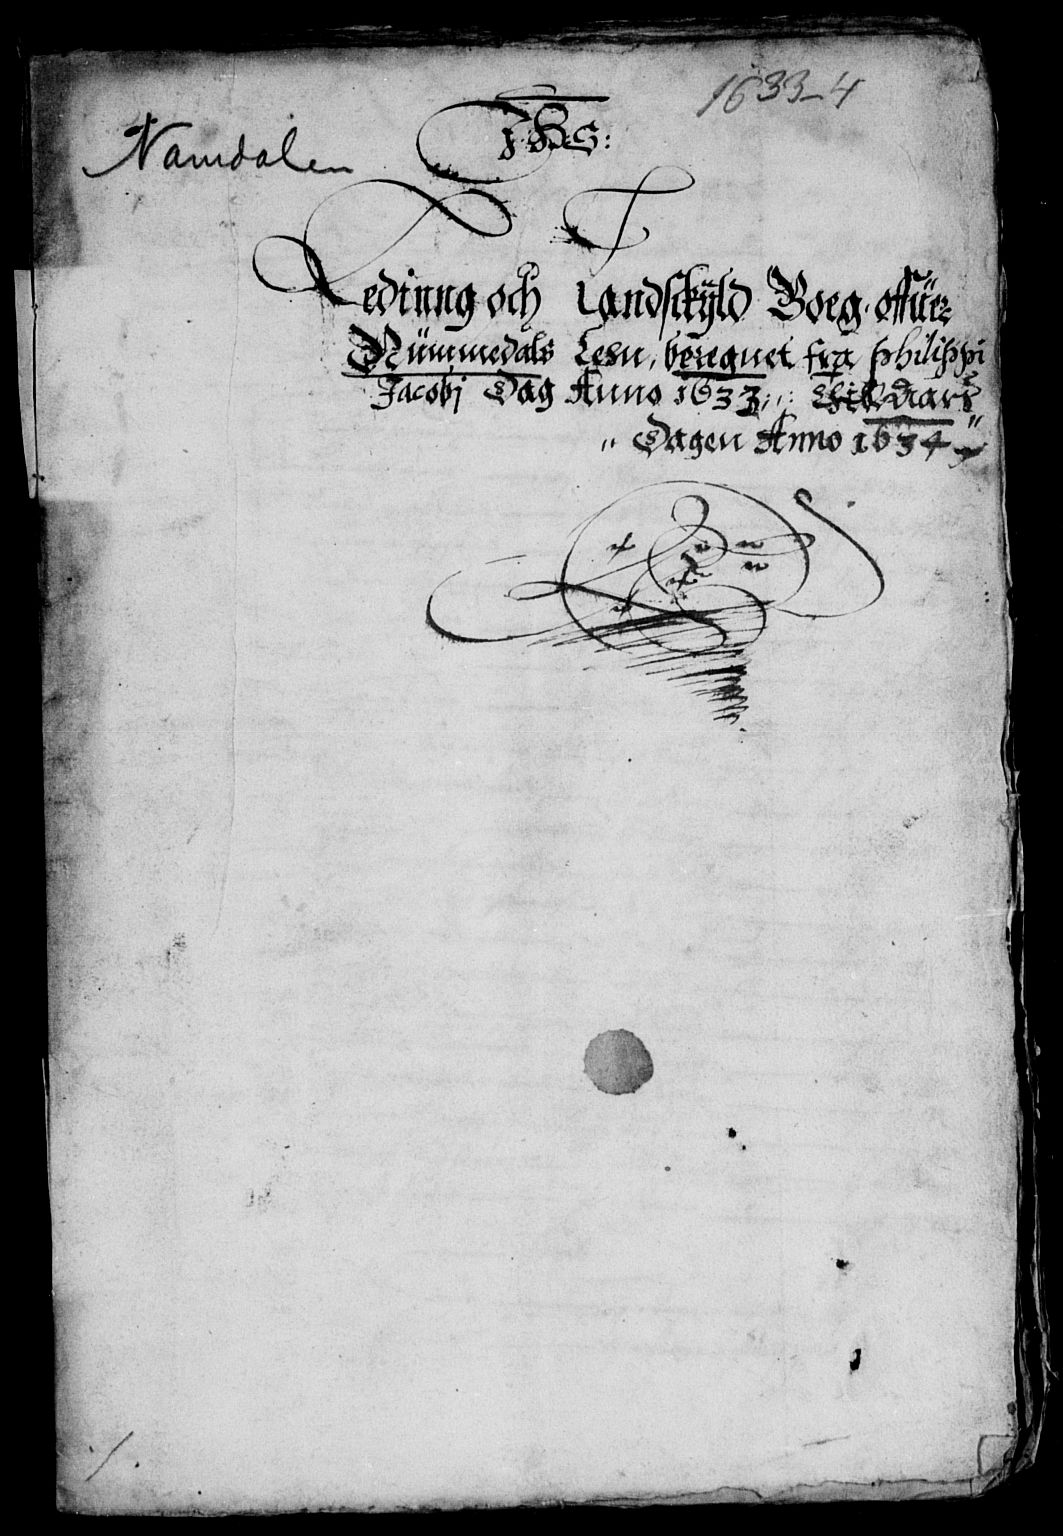 1633-4
Namdalen
IHS:
Ledinng och Landskyld Boeg offuer
Nümmedals Lehn, beregnet fra philippi
Jacobj Dag Anno 1633
Dagen Anno 1634